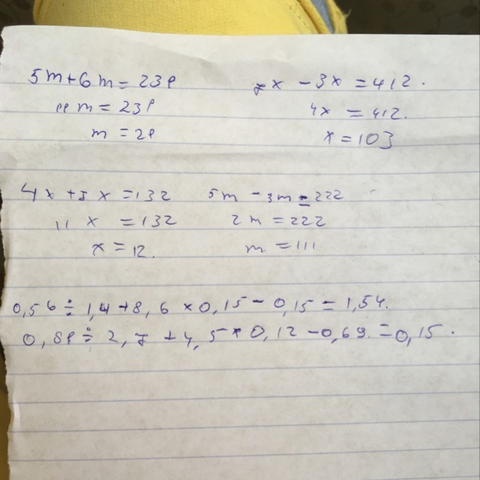 5m+6m=231
11m=231
m=21
7x-3x=412.
4x=412.
x=103
4x+7x=132
11x=132
x=12.
5m-3m=222
2m=222
m=111
0,56÷1,4+8,6×0,15-0,15=1,54.
0,81÷2,7+4,5×0,12-0,69.=0,15.